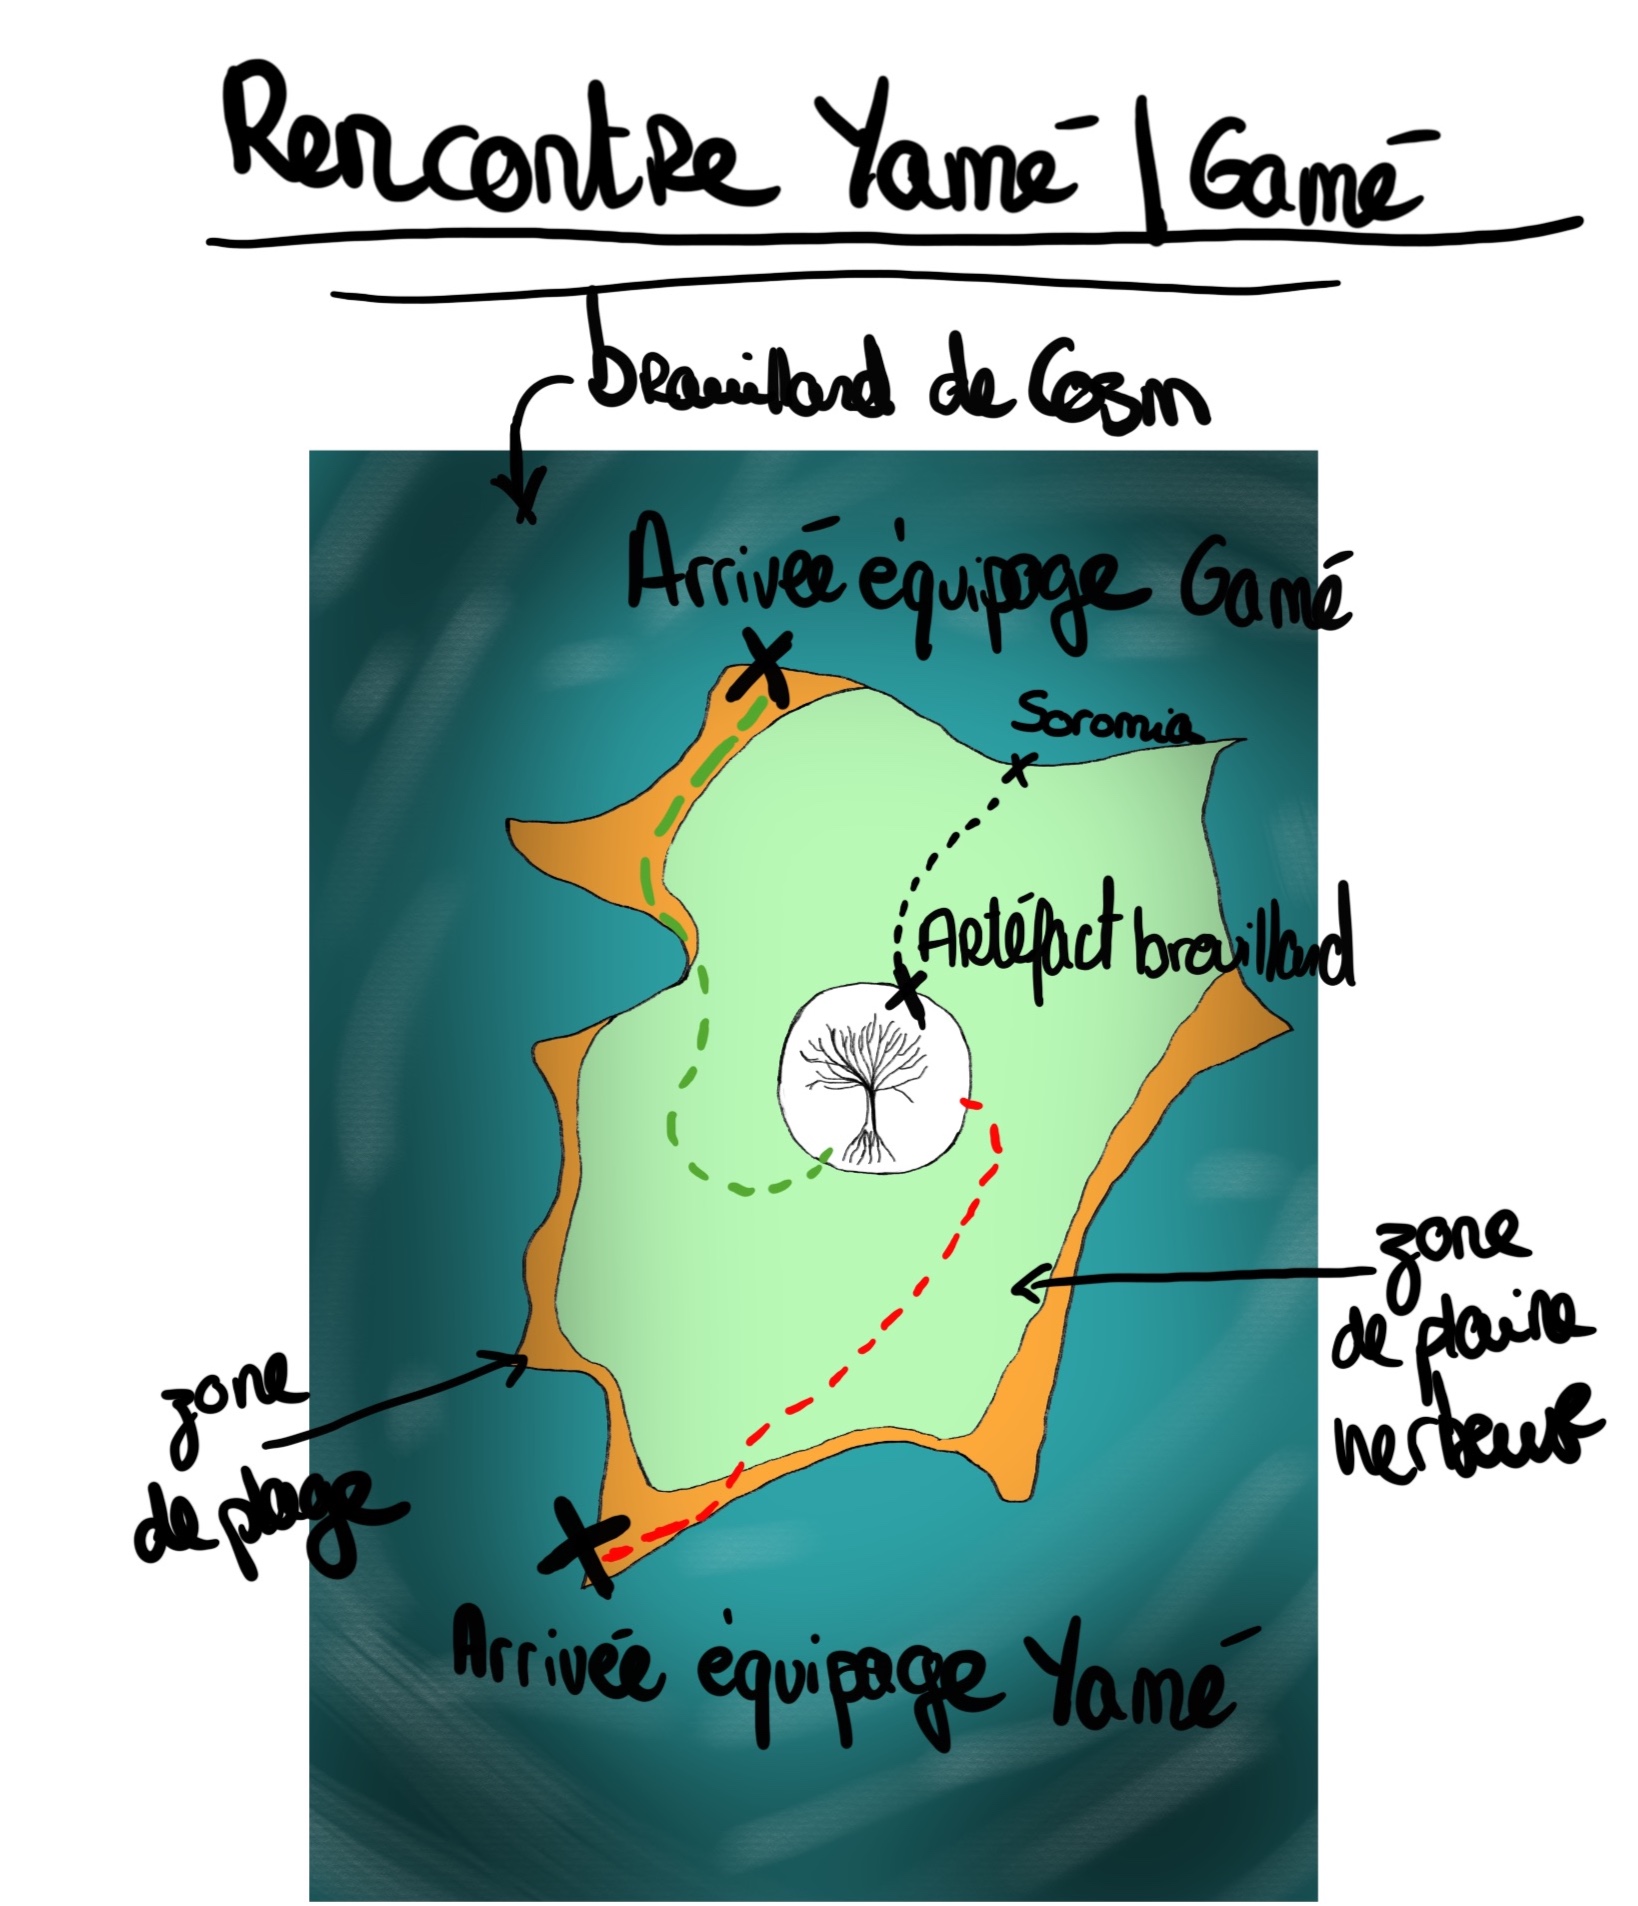 Rencontre Yamé | Gamé
brouillard de Cosm
Arrivée équipage Gamé
Soromia
Artéfact brouillard
zone
de plaine
herbeuse
zone
de plage
Arrivée équipage Yamé